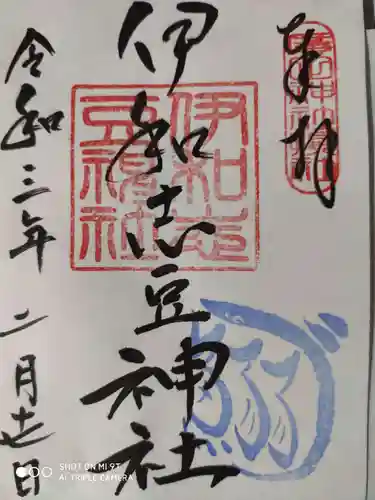 奉拝
伊和志豆神社
伊和志豆神社
令和三年二月十七日
SHOT ON MI 9T
AI TRIPLE CAMERA